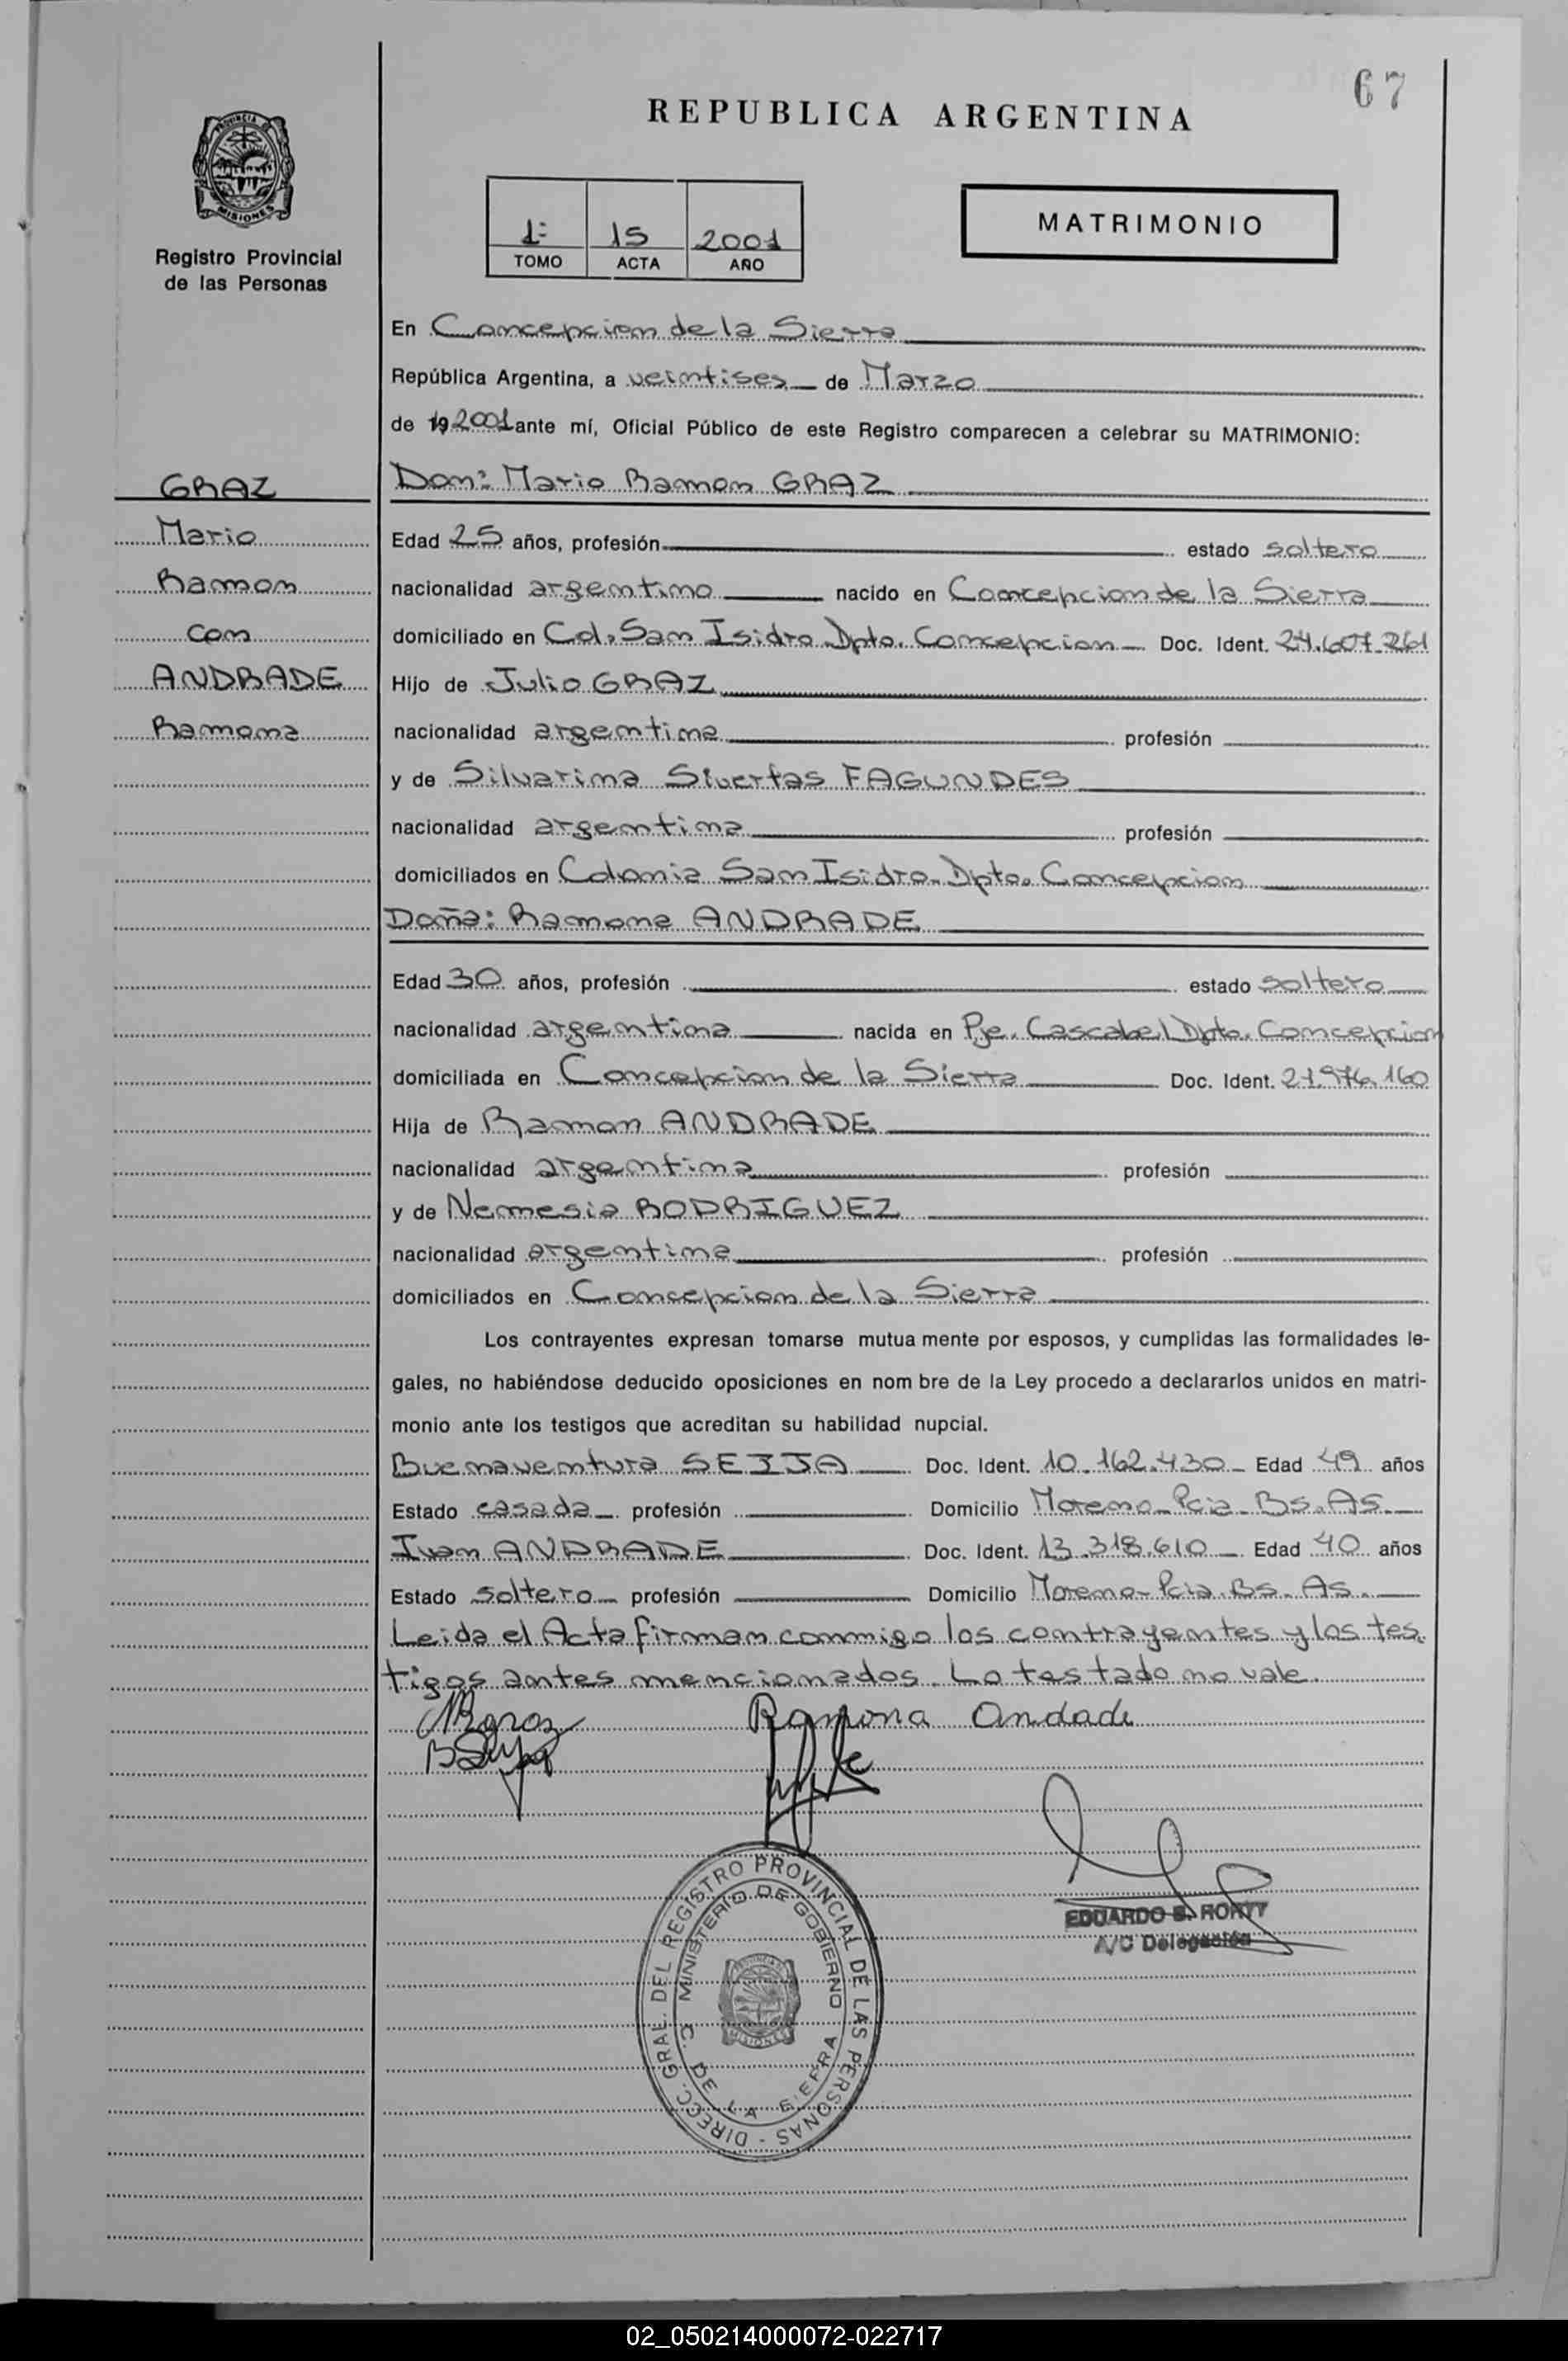 67
REPUBLICA ARGENTINA
PROVINCIA DE
MISIONES
Registro Provincial
de las Personas
1º 15 2001
TOMO ACTA AÑO
MATRIMONIO
En Concepcion de la Sierra
República Argentina, a veintises de Marzo
de 19 2001 ante mí, Oficial Público de este Registro comparecen a celebrar su MATRIMONIO:
GRAZ
Mario
Ramon
con
ANDRADE
Ramona
Don: Mario Ramon GRAZ
Edad 25 años, profesión estado soltero
nacionalidad argentino nacido en Concepcion de la Sierra
domiciliado en Col. San Isidro Dpto. Concepcion Doc. Ident. 24.607.261
Hijo de Julio GRAZ
nacionalidad argentina profesión
y de Silvarina Sivertas FAGUNDES
nacionalidad argentina profesión
domiciliados en Colonia San Isidro - Dpto. Concepcion
Doña: Ramona ANDRADE
Edad 30 años, profesión estado soltero
nacionalidad argentina nacida en Pje. Cascabel Dpto. Concepcion
domiciliada en Concepcion de la Sierra Doc. Ident. 21.976.160
Hija de Ramon ANDRADE
nacionalidad argentina profesión
y de Nemesia RODRIGUEZ
nacionalidad argentina profesión
domiciliados en Concepcion de la Sierra
Los contrayentes expresan tomarse mutua mente por esposos, y cumplidas las formalidades le-
gales, no habiéndose deducido oposiciones en nom bre de la Ley procedo a declararlos unidos en matri-
monio ante los testigos que acreditan su habilidad nupcial.
Buenaventura SEIJA Doc. Ident. 10.162.430 Edad 49 años
Estado casada profesión Domicilio Moreno - Pcia - Bs. As.
Ivan ANDRADE Doc. Ident. 13.318.610 Edad 40 años
Estado soltero profesión Domicilio Moreno - Pcia. Bs. As.
Leida el Acta firman conmigo los contrayentes y los tes.
tigos antes mencionados. Lo testado no vale.
Ramona Andade
DIRECC. GRAL. DEL REGISTRO PROVINCIAL DE LAS PERSONAS -
MINISTERIO DE GOBIERNO
C. DE LA SIERRA
MISIONES
EDUARDO
A/C Delegación
02_050214000072-022717